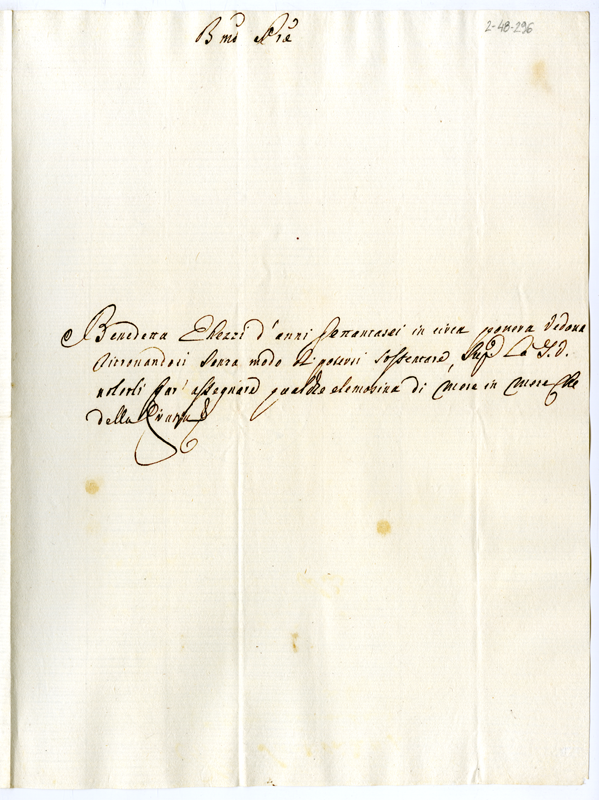 B.mo Pre
2-48-296
Benedetta d'anni settantasei in circa povera Vedova
ritrovandosi senza modo di potersi sostentare, Supp.ca la S.V.
volerli far' assegnare qualche elemosina di mese in mese che
della